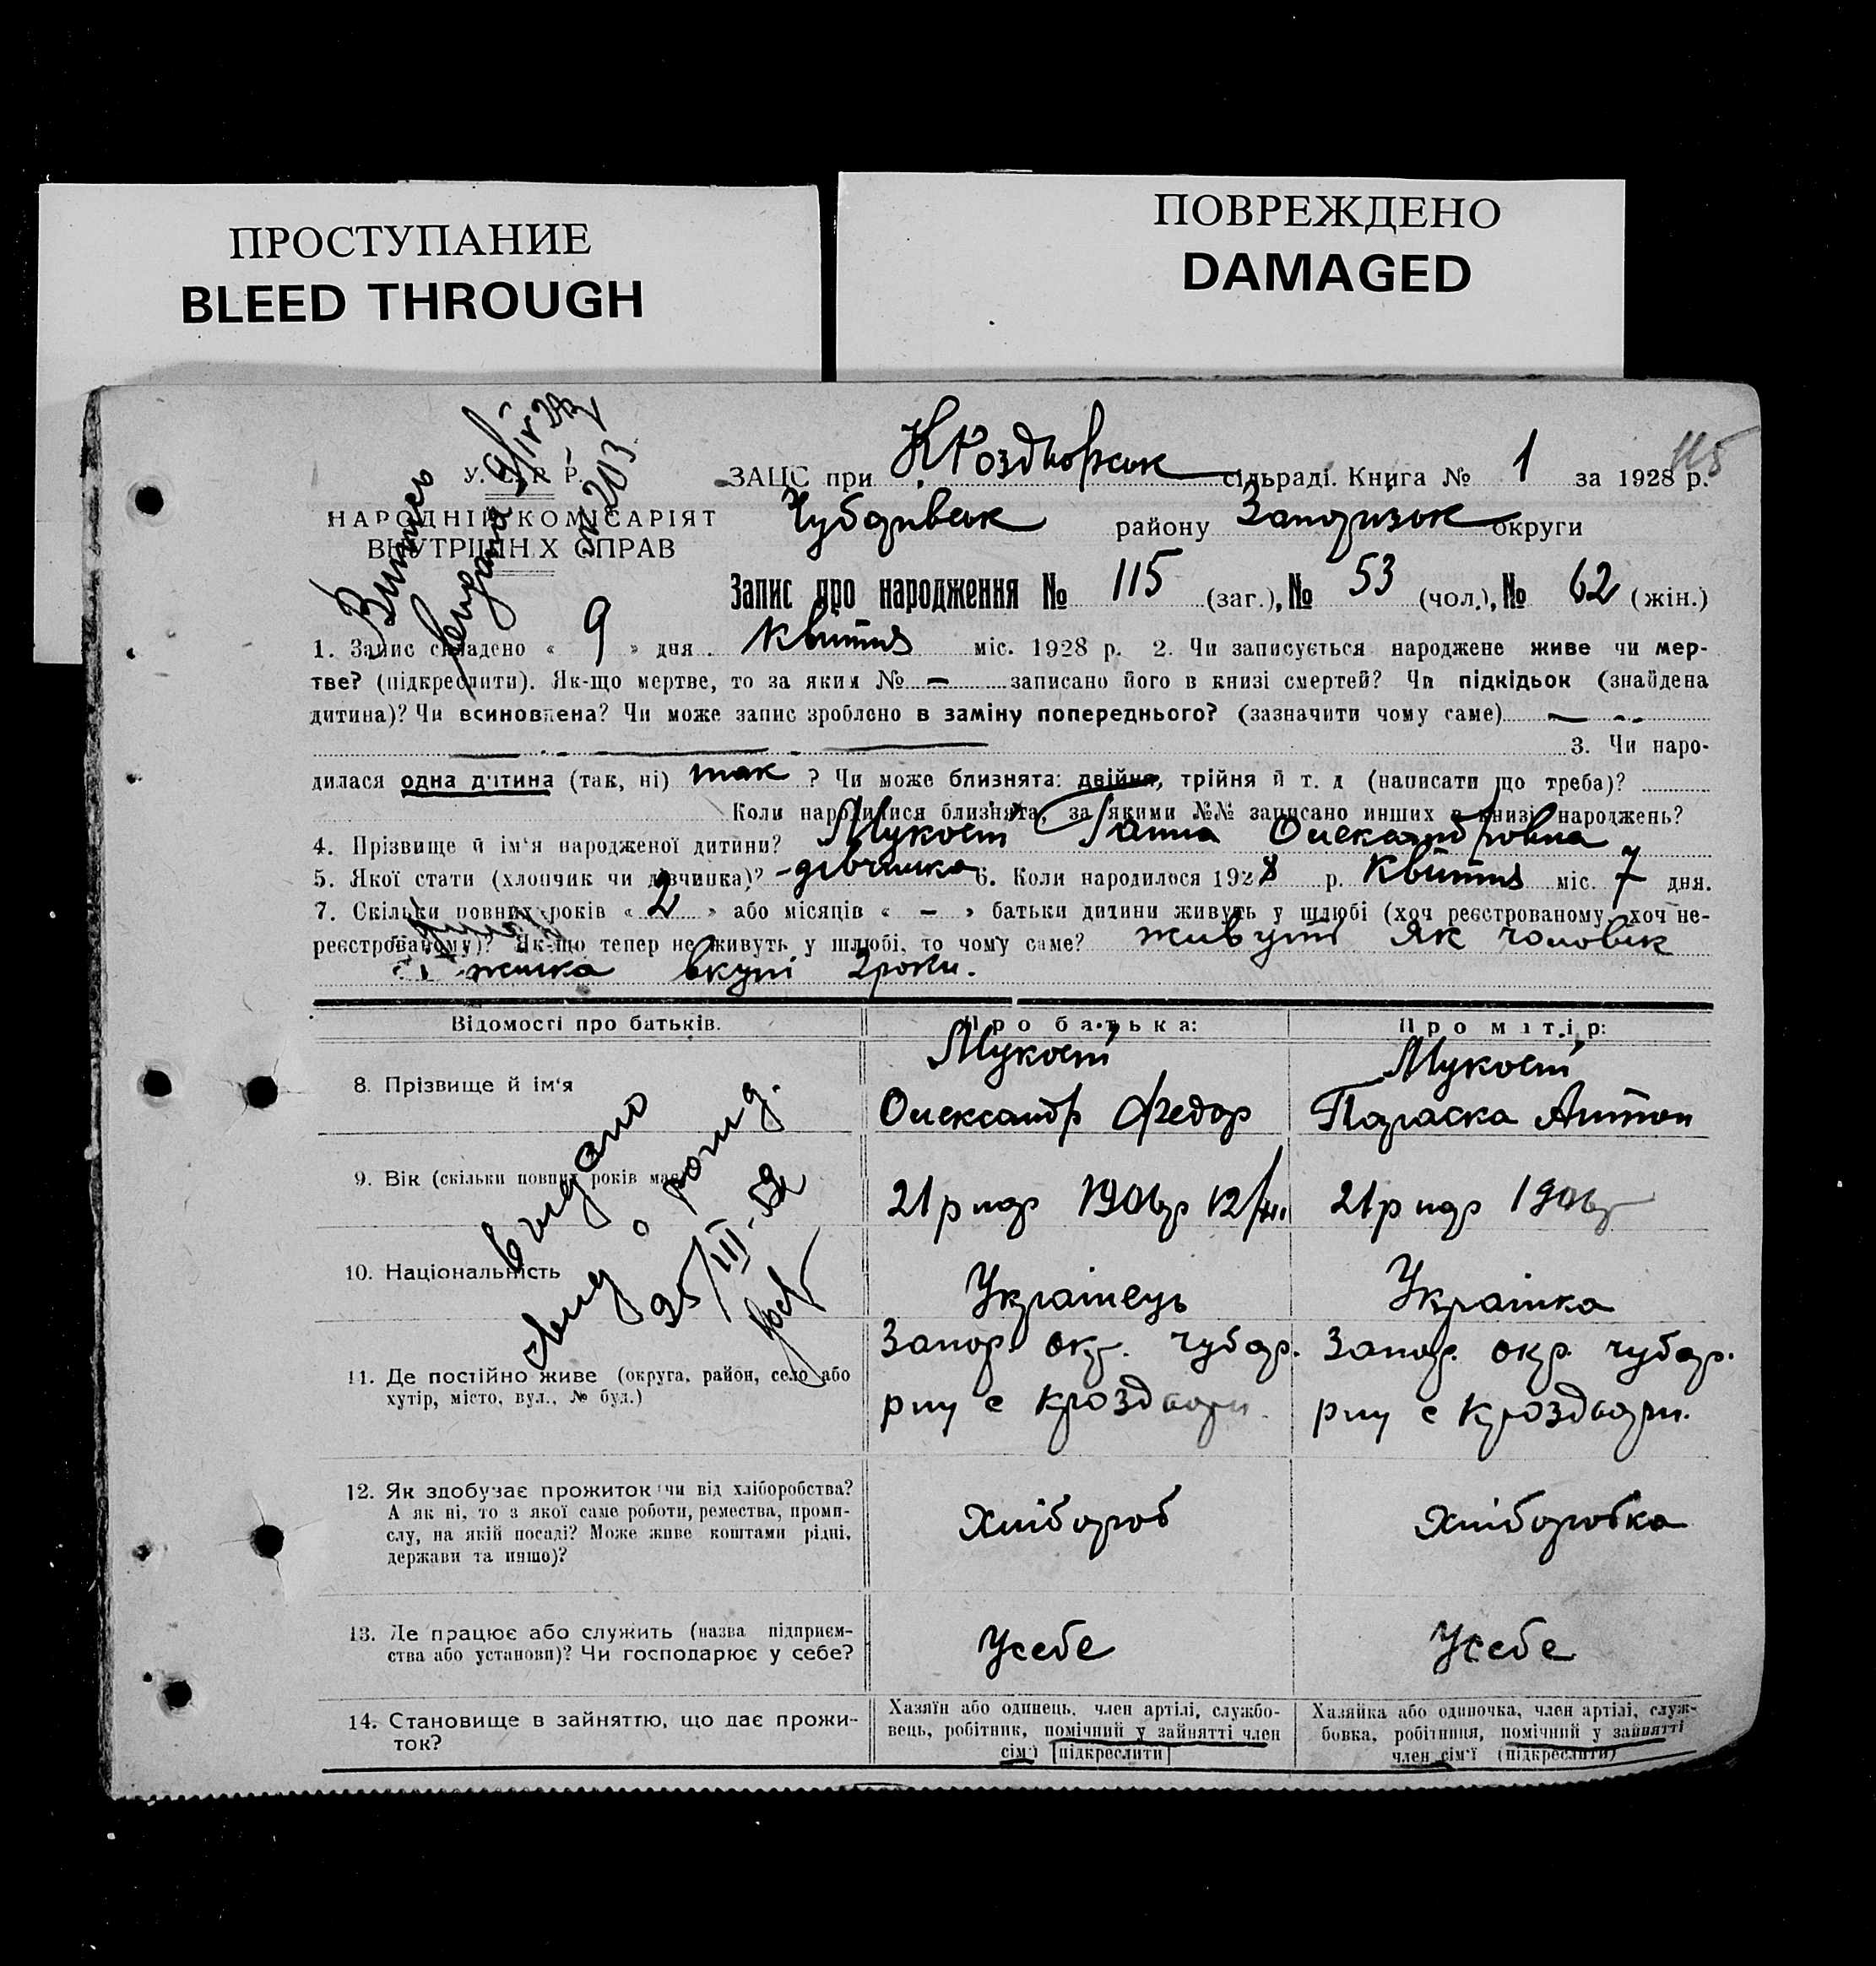 ПРОСТУПАНИЕ
BLEED THROUGH
ПОВРЕЖДЕНО
DAMAGED
115
У. С. Р. Р.
НАРОДНІЙ КОМІСАРІЯТ
ВНУТРІШНІХ СПРАВ
Витись
видана 9/IV 28р
№ 203
ЗАЦС при К. Роздворськ сільраді. Книга № 1 за 1928 р.
Чубарівськ району Запоризьк округи
Запис про народження № 115 (заг.), № 53 (чол.), № 62 (жін.)
1. Запис складено « 9 » дня Квітня міс. 1928 р. 2. Чи записується народжене живе чи мер-
тве? (підкреслити). Як-що мертве, то за яким № — записано його в книзі смертей? Чи підкідьок (знайдена
дитина)? Чи всиновлена? Чи може запис зроблено в заміну попереднього? (зазначити чому саме)
3. Чи наро-
дилася одна дитина (так, ні) так ? Чи може близнята: двійня, трійня й т. д (написати що треба)?
Коли народилися близнята, за якими №№ записано инших в книзі народжень?
4. Прізвище й ім'я народженої дитини? Мукоєіт Ганна Олександровна
5. Якої стати (хлопчик чи дівчинка)? - дівчинка 6. Коли народилося 1928 р. Квітня міс. 7 дня.
7. Скільки повних років « 2 » або місяців « - » батьки дитини живуть у шлюбі (хоч реєстрованому, хоч не-
реєстрованому)? Як-що тепер не живуть у шлюбі, то чому саме? живуть як чоловік
жинка вкупі 2 роки.
Відомості про батьків.
Про батька:
Про матір:
8. Прізвище й ім'я
Олександр Федор
Параска Антон
9. Вік (скільки повних років має)
21 р нар 1906 р 12/
21 р нар 1906 р
10. Національність
Українець
Українка
11. Де постійно живе (округа, район, село або
хутір, місто, вул., № буд.)
Запор. окр. чубар.
рну с Кроздвори.
Запор. окр. чубар.
рну с Кроздвори.
12. Як здобуває прожиток чи від хліборобства?
А як ні, то з якої саме роботи, ремества, проми-
слу, на якій посаді? Може живе коштами рідні,
держави та иншо)?
Хлібороб
Хлиборобка
13. Де працює або служить (назва підприєм-
ства або установи)? Чи господарює у себе?
Усебе
Усебе
14. Становище в зайняттю, що дає прожи-
ток?
Хазяїн або одинець, член артілі, службо-
вець, робітник, помічний у зайнятті член
сім'ї [підкреслити]
Хазяйка або одиночка, член артілі, служ-
бовка, робітниця, помічний у зайнятті
член сім'ї (підкреслити)
видано
свид о рожд.
25/III-52